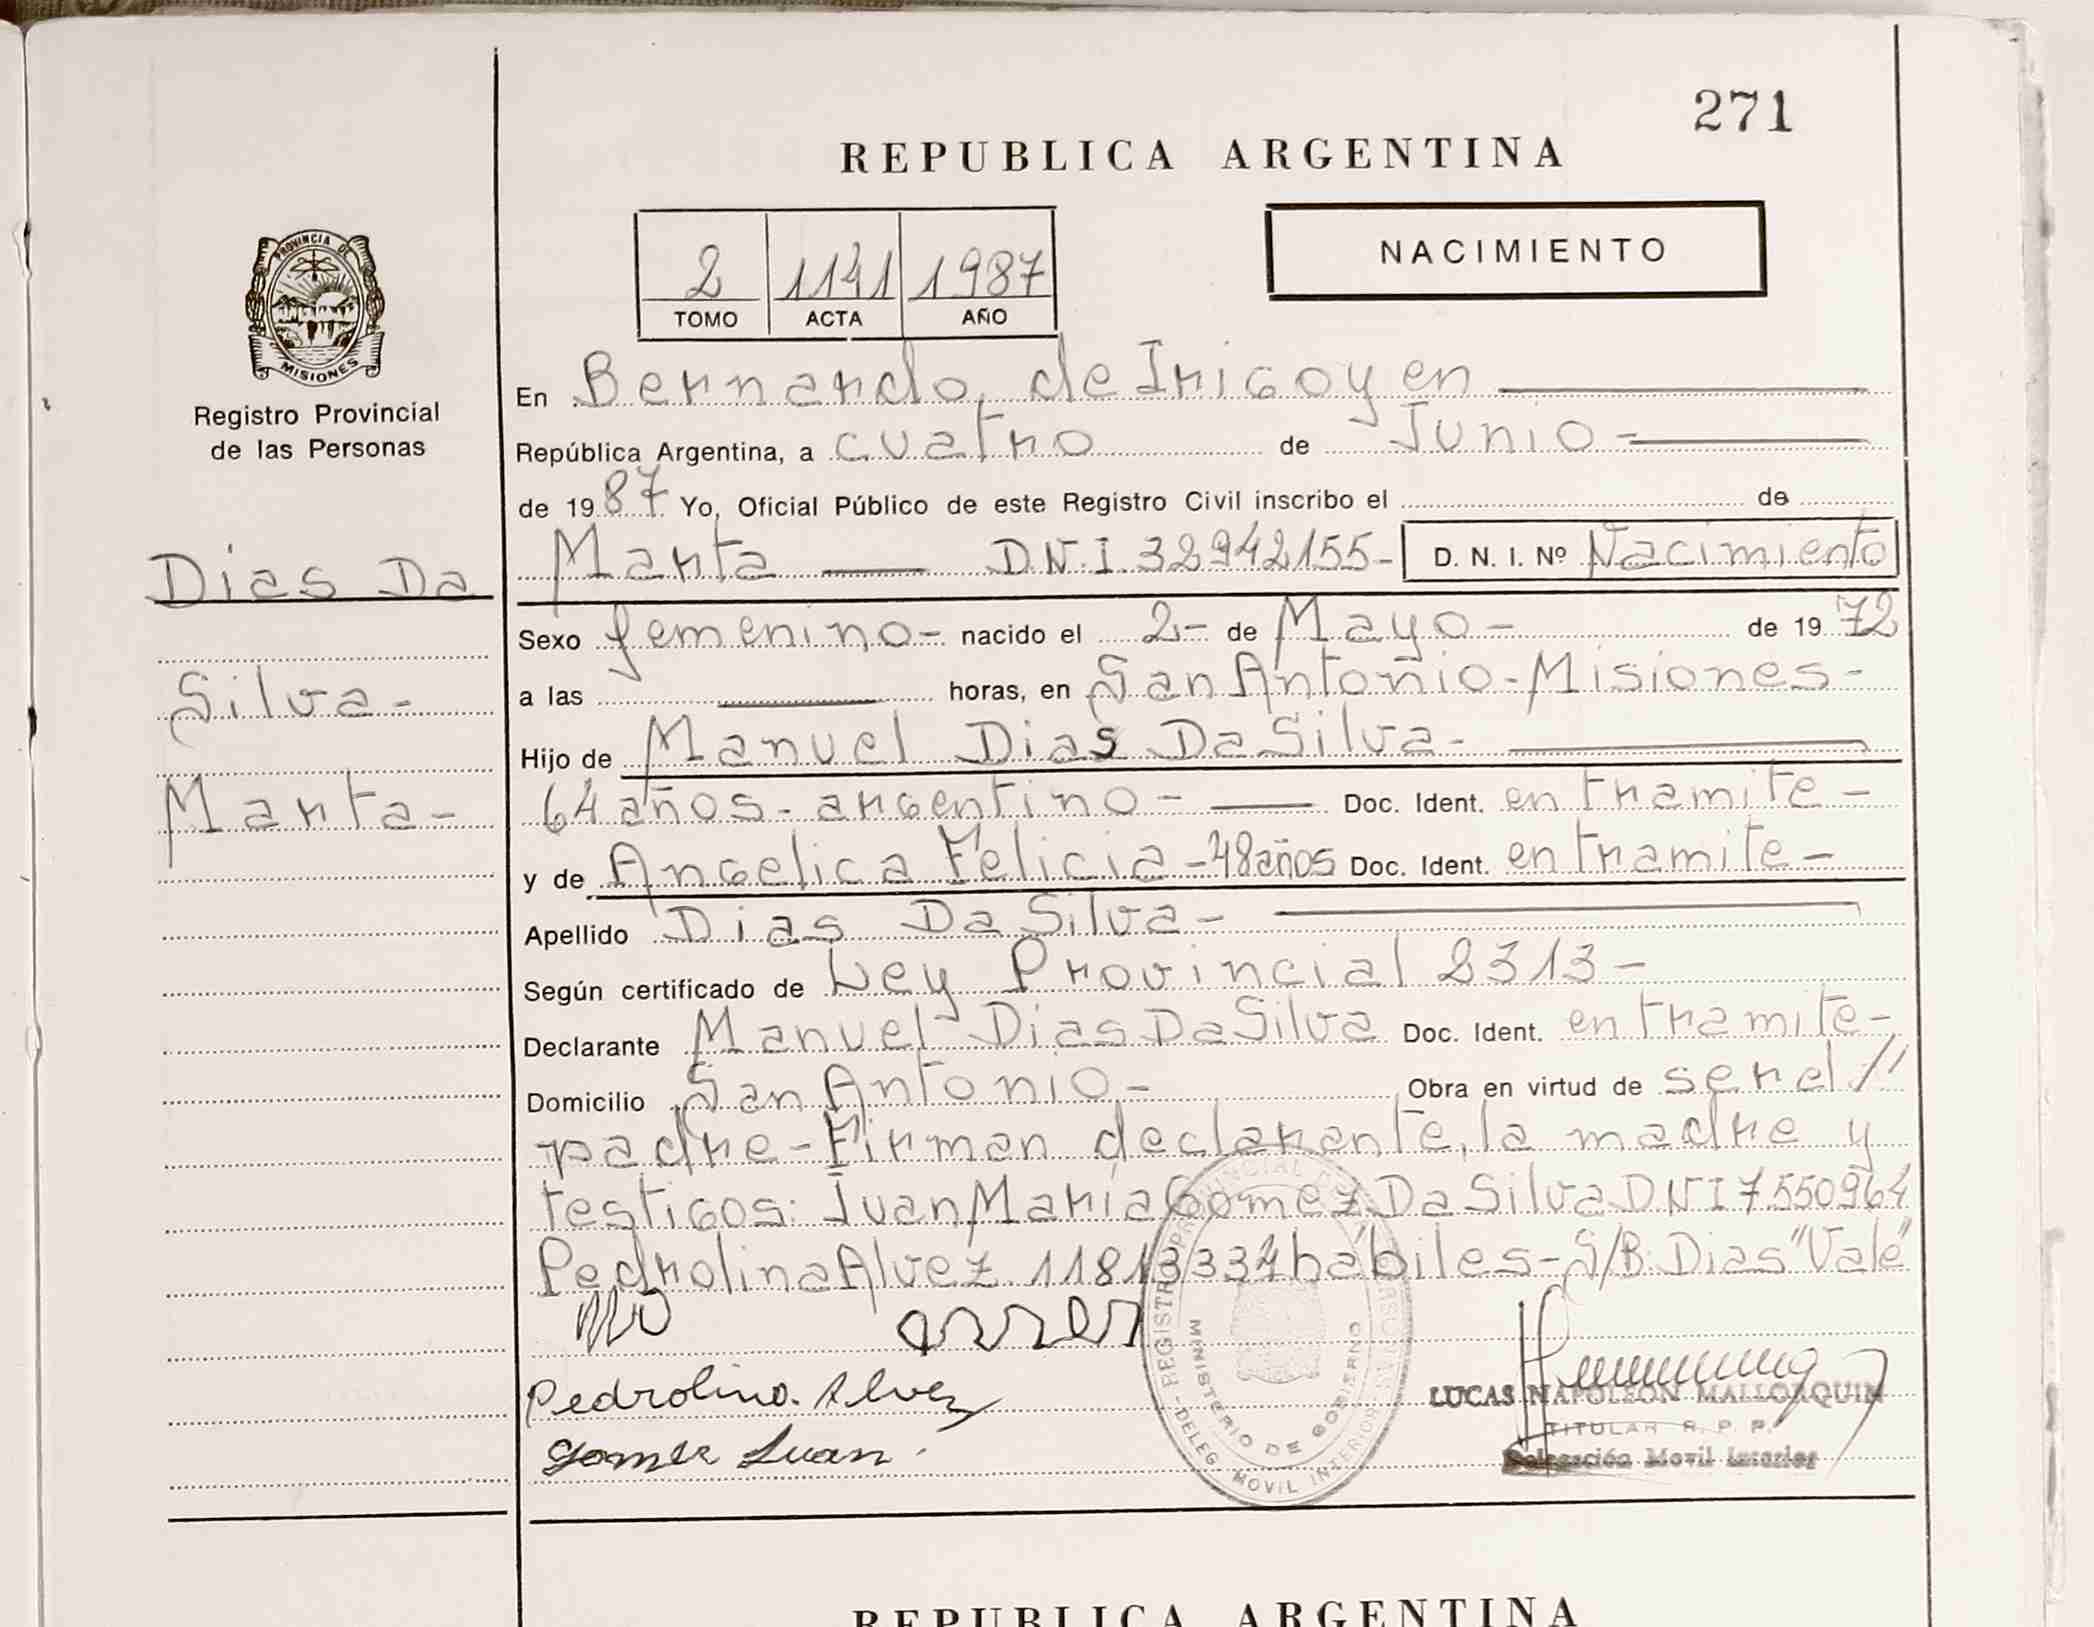 271
REPUBLICA ARGENTINA
NACIMIENTO
2 1141 1987
TOMO ACTA AÑO
PROVINCIA DE MISIONES
Registro Provincial
de las Personas
Dias Da
Silva-
Marta-
En Bernardo de Irigoyen
República Argentina, a cuatro de Junio-
de 1987 Yo, Oficial Público de este Registro Civil inscribo el de
Marta — D.N.I. 32942155- D. N. I. Nº Nacimiento
Sexo femenino- nacido el 2- de Mayo- de 1972
a las — horas, en San Antonio-Misiones-
Hijo de Manuel Dias Da Silva-
64 años-argentino- — Doc. Ident. en tramite-
y de Angelica Felicia-48 años Doc. Ident. en tramite-
Apellido Dias Da Silva-
Según certificado de Ley Provincial 2313-
Declarante Manuel Dias Da Silva Doc. Ident. en tramite-
Domicilio San Antonio- Obra en virtud de ser el //
padre-Firman declarante, la madre y
testigos: Juan Maria Gomez Da Silva DNI 7550964
Pedrolina Alvez 11813334 hábiles-S/B: Dias "Vale"
Pedrolina Alvez
Gomez Juan
MINISTERIO DE GOBIERNO
DELEG. MOVIL INTERIOR
LUCAS NAPOLEON MALLORQUIN
TITULAR R. P. P.
Delegación Movil Interior
REPUBLICA ARGENTINA